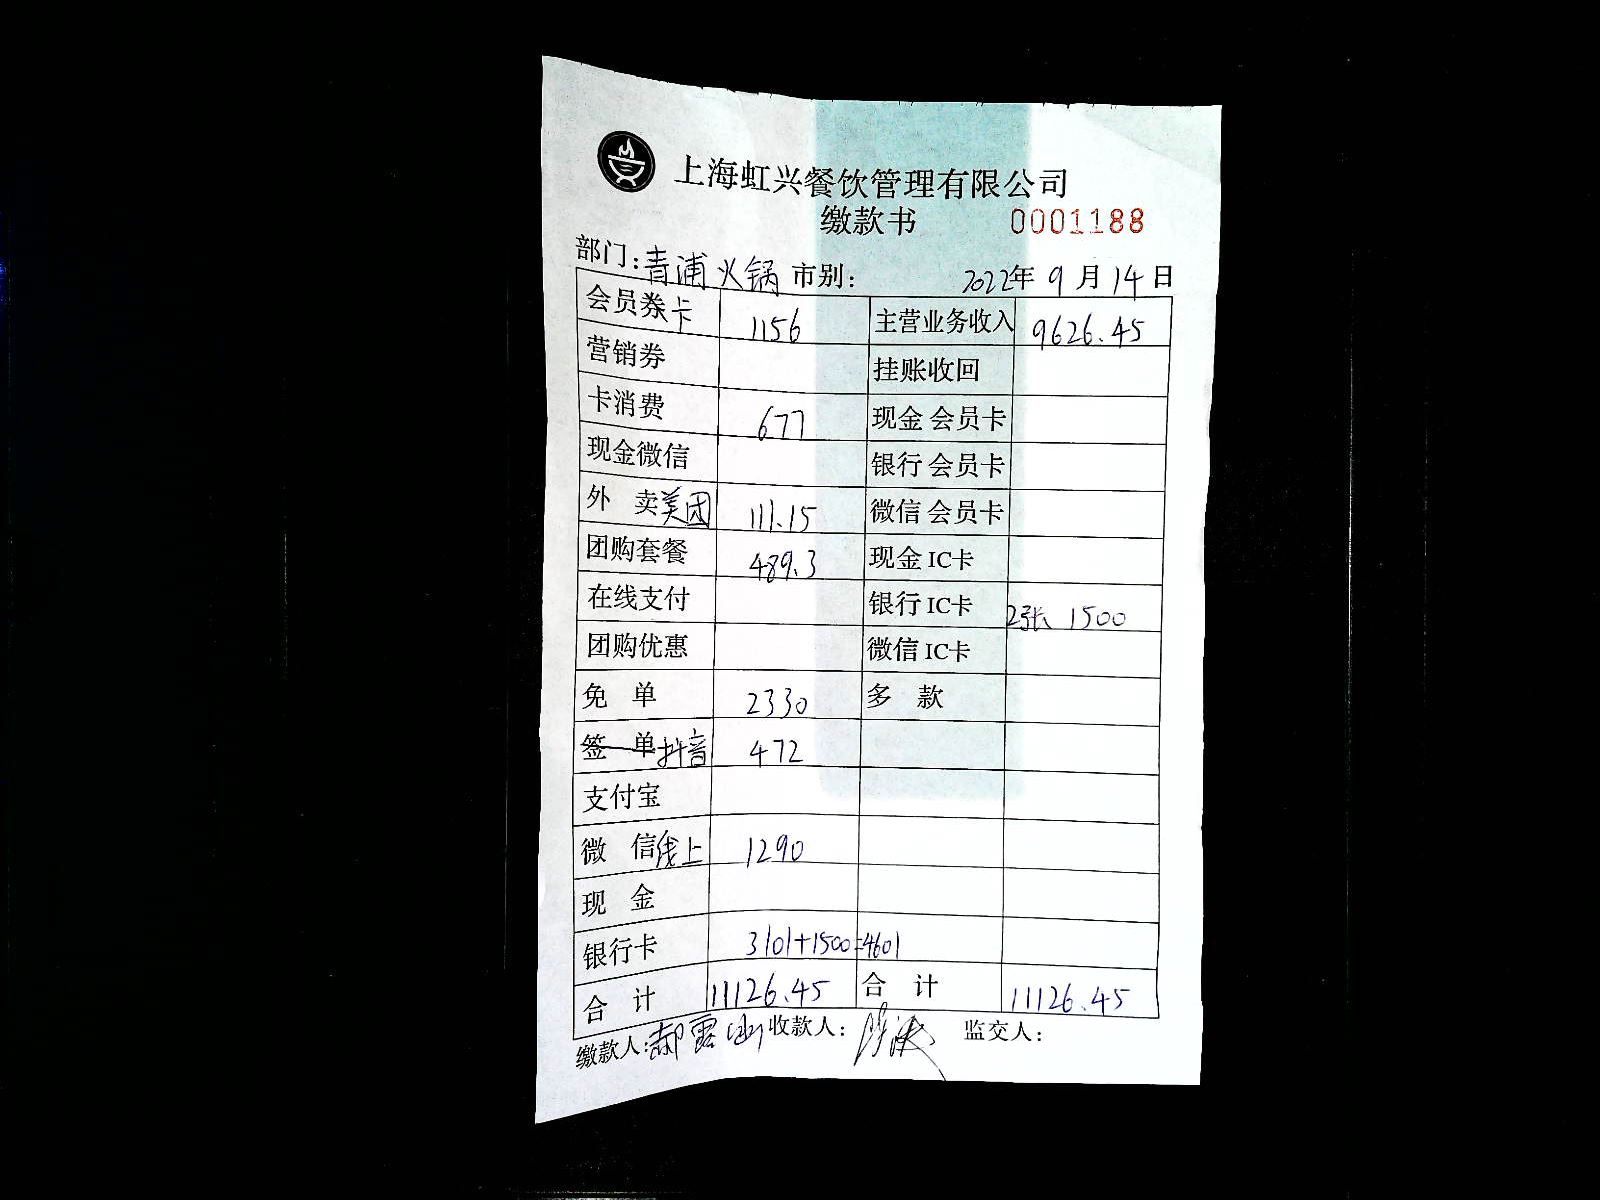 上海虹兴餐饮管理有限公司
缴款书 0001188
部门:青浦火锅 市别: 2022年 9 月 14 日
会员券卡 1156 主营业务收入 9626.45
营销券 挂账收回
卡消费 677 现金 会员卡
现金微信 银行 会员卡
外 卖美团 111.15 微信 会员卡
团购套餐 489.3 现金 IC卡
在线支付 银行 IC卡 2张 1500
团购优惠 微信 IC卡
免 单 2330 多 款
签 单抖音 472
支付宝
微 信线上 1290
现 金
银行卡 3101+1500=4601
合 计 11126.45 合 计 11126.45
缴款人:郝露 收款人: 监交人: